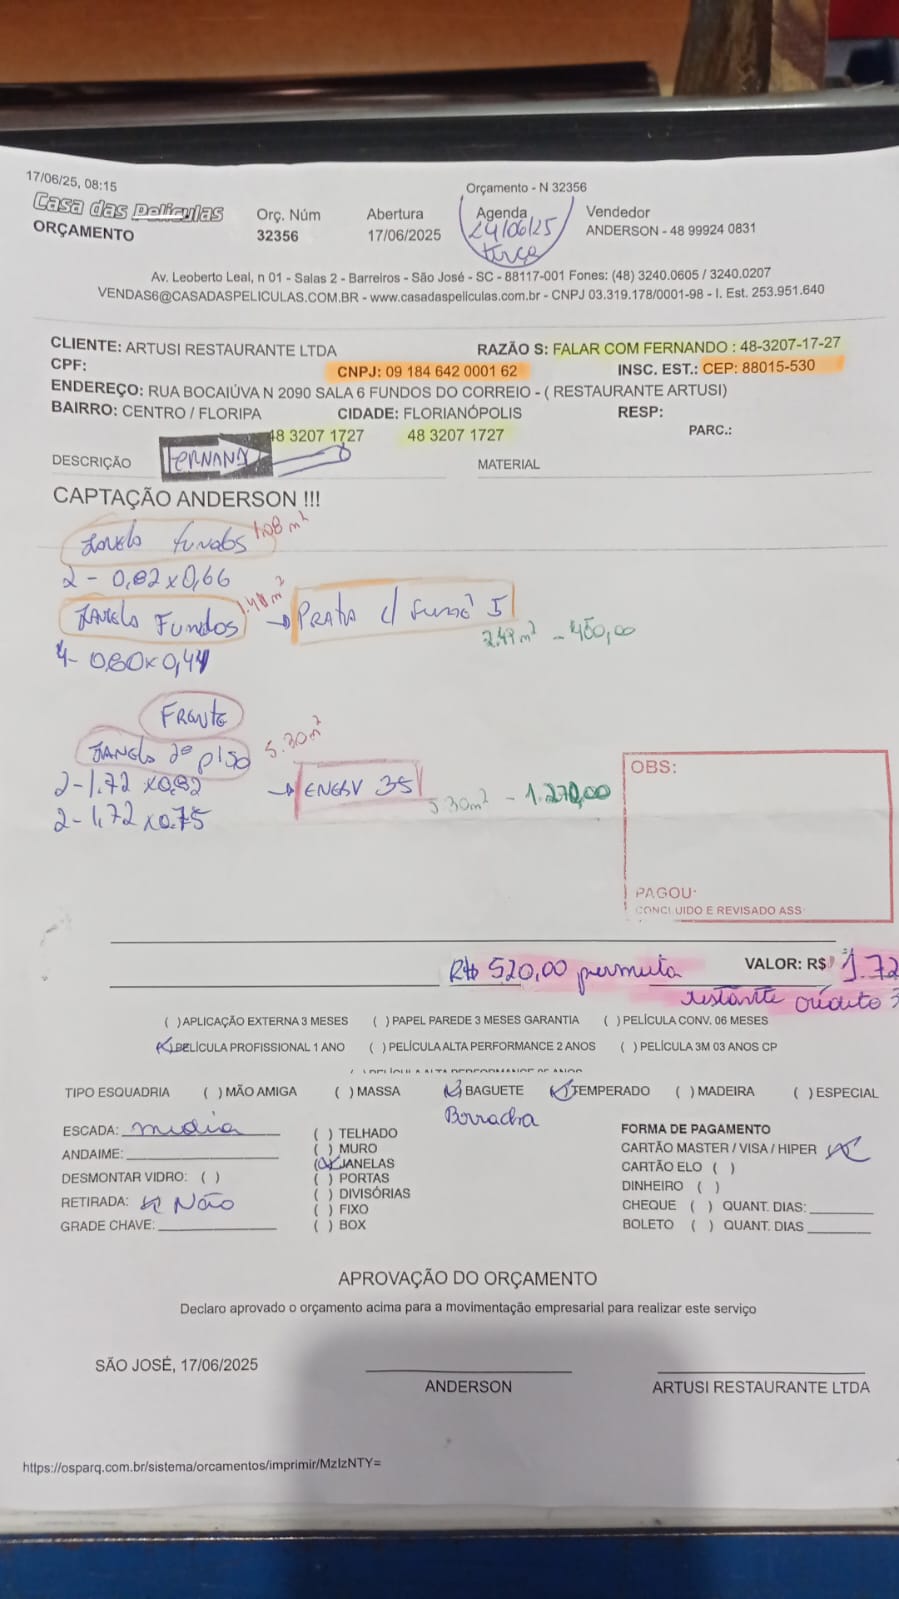 17/06/25, 08:15
Orçamento - N 32356
Casa das Películas
ORÇAMENTO
Orç. Núm
32356
Abertura
17/06/2025
Agenda
24/06/25
terça
Vendedor
ANDERSON - 48 99924 0831
Av. Leoberto Leal, n 01 - Salas 2 - Barreiros - São José - SC - 88117-001 Fones: (48) 3240.0605 / 3240.0207
VENDAS6@CASADASPELICULAS.COM.BR - www.casadaspeliculas.com.br - CNPJ 03.319.178/0001-98 - I. Est. 253.951.640
CLIENTE: ARTUSI RESTAURANTE LTDA
RAZÃO S: FALAR COM FERNANDO : 48-3207-17-27
CPF:
CNPJ: 09 184 642 0001 62
INSC. EST.: CEP: 88015-530
ENDEREÇO: RUA BOCAIÚVA N 2090 SALA 6 FUNDOS DO CORREIO - ( RESTAURANTE ARTUSI)
BAIRRO: CENTRO / FLORIPA
CIDADE: FLORIANÓPOLIS
RESP:
48 3207 1727
48 3207 1727
PARC.:
DESCRIÇÃO
MATERIAL
CAPTAÇÃO ANDERSON !!!
Janela fundos 1.08 m²
2 - 0,82 x 0,66
Janela Fundos
→ PRATA c/ fumê 5
2.49 m² - 450,00
4 - 0,80 x 0,44
FRENTE
JANELA 2º piso 5.30 m²
2 - 1,72 x 0,82
→ ENERV 35
5.30 m² - 1.270,00
2 - 1,72 x 0.75
OBS:
PAGOU:
CONCLUIDO E REVISADO ASS:
R$ 520,00 permuta
VALOR: R$ 1.72
restante crédito
( )APLICAÇÃO EXTERNA 3 MESES ( ) PAPEL PAREDE 3 MESES GARANTIA ( )PELÍCULA CONV. 06 MESES
(x)PELÍCULA PROFISSIONAL 1 ANO ( )PELÍCULA ALTA PERFORMANCE 2 ANOS ( )PELÍCULA 3M 03 ANOS CP
TIPO ESQUADRIA ( ) MÃO AMIGA ( ) MASSA (x)BAGUETE (x)TEMPERADO ( ) MADEIRA ( ) ESPECIAL
Borracha
ESCADA: media
ANDAIME:
DESMONTAR VIDRO: ( )
RETIRADA: Não
GRADE CHAVE:
( ) TELHADO
( ) MURO
(x)JANELAS
( ) PORTAS
( ) DIVISÓRIAS
( ) FIXO
( ) BOX
FORMA DE PAGAMENTO
CARTÃO MASTER / VISA / HIPER
CARTÃO ELO ( )
DINHEIRO ( )
CHEQUE ( ) QUANT. DIAS:
BOLETO ( ) QUANT. DIAS
APROVAÇÃO DO ORÇAMENTO
Declaro aprovado o orçamento acima para a movimentação empresarial para realizar este serviço
SÃO JOSÉ, 17/06/2025
ANDERSON
ARTUSI RESTAURANTE LTDA
https://osparq.com.br/sistema/orcamentos/imprimir/MzIzNTY=